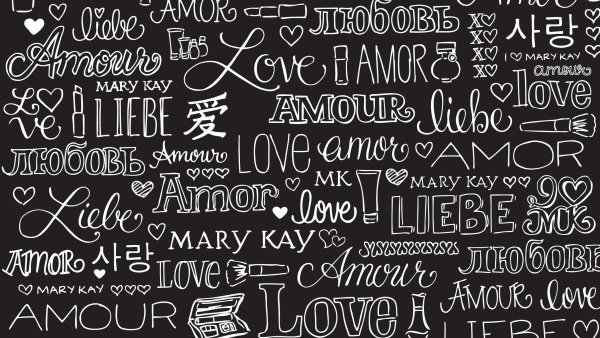 liebe
ЛЮБОВЬ
XO
사랑
Amour
Love
AMOR
I ♡ MARY KAY
amour
MARY KAY
Love
LIEBE
爱
AMOUR
liebe
love
ЛЮБОВЬ
Amour
LOVE
amor
AMOR
Amor
MK
MARY KAY
love
LIEBE
Liebe
MARY KAY
AMOR
사랑
LOVE
Amour
ЛЮБОВЬ
MARY KAY
AMOUR
Love
AMOUR
love
LIEBE